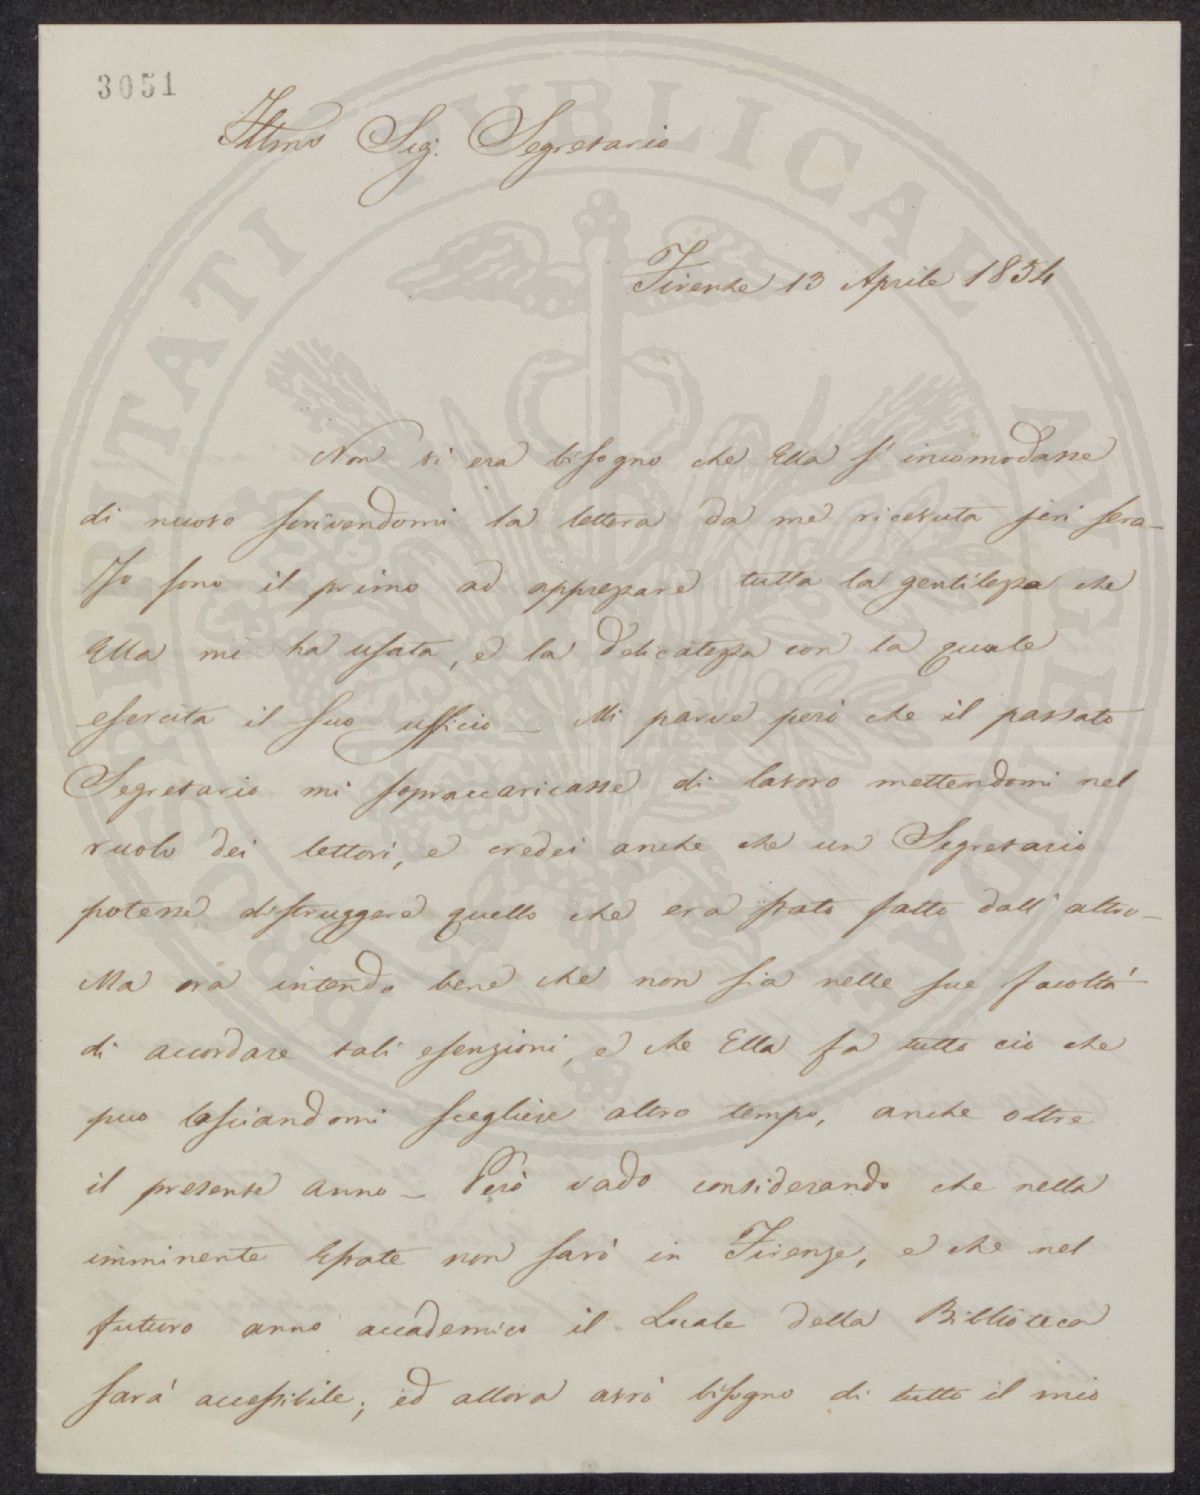 3051
Illmo Sig. Segretario
Firenze 13 Aprile 1854
Non vi era bisogno che Ella s' incomodasse
di nuovo scrivendomi la lettera da me ricevuta jeri sera_
Io sono il primo ad apprezzare tutta la gentilezza che
Ella mi ha usata, e la delicatezza con la quale
esercita il suo ufficio _ Mi parve però che il passato
Segretario mi sopraccaricasse di lavoro mettendomi nel
ruolo dei lettori, e credei anche che un Segretario
potesse distruggere quello che era stato fatto dall' altro_
Ma ora intendo bene che non sia nelle sue facoltà
di accordare tali esenzioni, e che Ella fa tutto ciò che
puo lasciandomi scegliere altro tempo, anche oltre
il presente anno _ Però vado considerando che nella
imminente Estate non sarò in Firenze, e che nel
futuro anno accademico il Locale della Biblioteca
sarà accessibile; ed allora avrò bisogno di tutto il mio
PROSPERITATI PUBLICAE AUGENDAE